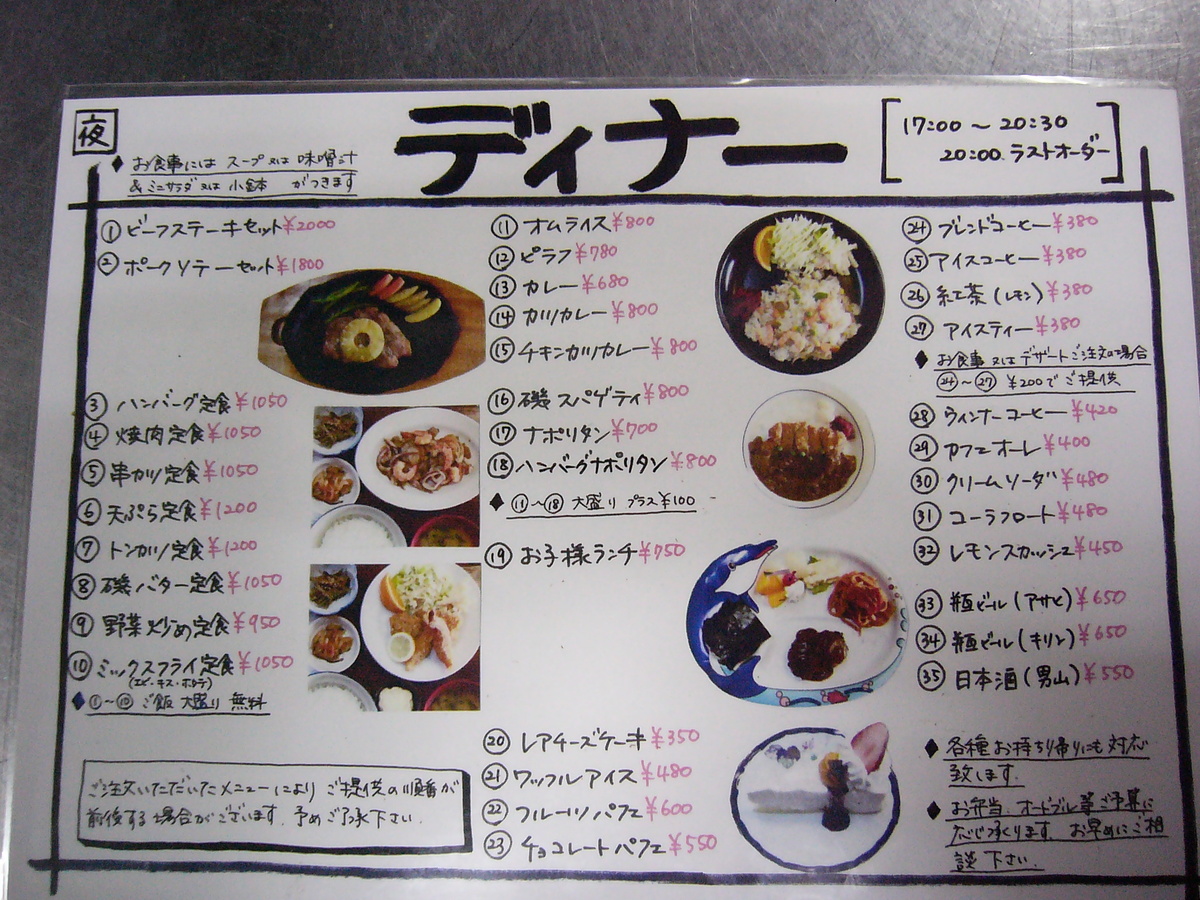 夜
ディナー
17:00 ～ 20:30
20:00. ラストオーダー
◆ お食事には スープ又は 味噌汁
& ミニサラダ又は 小鉢 がつきます
① ビーフステーキセット ¥2000
② ポークソテーセット ¥1800
③ ハンバーグ定食 ¥1050
④ 焼肉定食 ¥1050
⑤ 串カツ定食 ¥1050
⑥ 天ぷら定食 ¥1200
⑦ トンカツ定食 ¥1200
⑧ 磯バター定食 ¥1050
⑨ 野菜炒め定食 ¥950
⑩ ミックスフライ定食 ¥1050
(エビ・キス・ホタテ)
◆ ①～⑩ ご飯 大盛り 無料
ご注文いただいたメニューにより ご提供の順番が
前後する場合がございます. 予めご了承下さい.
⑪ オムライス ¥800
⑫ ピラフ ¥780
⑬ カレー ¥680
⑭ カツカレー ¥800
⑮ チキンカツカレー ¥800
⑯ 磯スパゲティ ¥800
⑰ ナポリタン ¥700
⑱ ハンバーグナポリタン ¥800
◆ ⑪～⑱ 大盛り プラス¥100
⑲ お子様ランチ ¥750
⑳ レアチーズケーキ ¥350
㉑ ワッフルアイス ¥480
㉒ フルーツパフェ ¥600
㉓ チョコレートパフェ ¥550
㉔ ブレンドコーヒー ¥380
㉕ アイスコーヒー ¥380
㉖ 紅茶 (レモン) ¥380
㉗ アイスティー ¥380
◆ お食事 又は デザートご注文の場合
㉔～㉗ ¥200で ご提供
㉘ ウィンナーコーヒー ¥420
㉙ カフェオーレ ¥400
㉚ クリームソーダ ¥480
㉛ コーラフロート ¥480
㉜ レモンスカッシュ ¥450
㉝ 瓶ビール (アサヒ) ¥650
㉞ 瓶ビール (キリン) ¥650
㉟ 日本酒 (男山) ¥550
◆ 各種お持ち帰りにも対応
致します.
◆ お弁当. オードブル等ご予算に
応じ承ります. お早めにご相
談下さい.